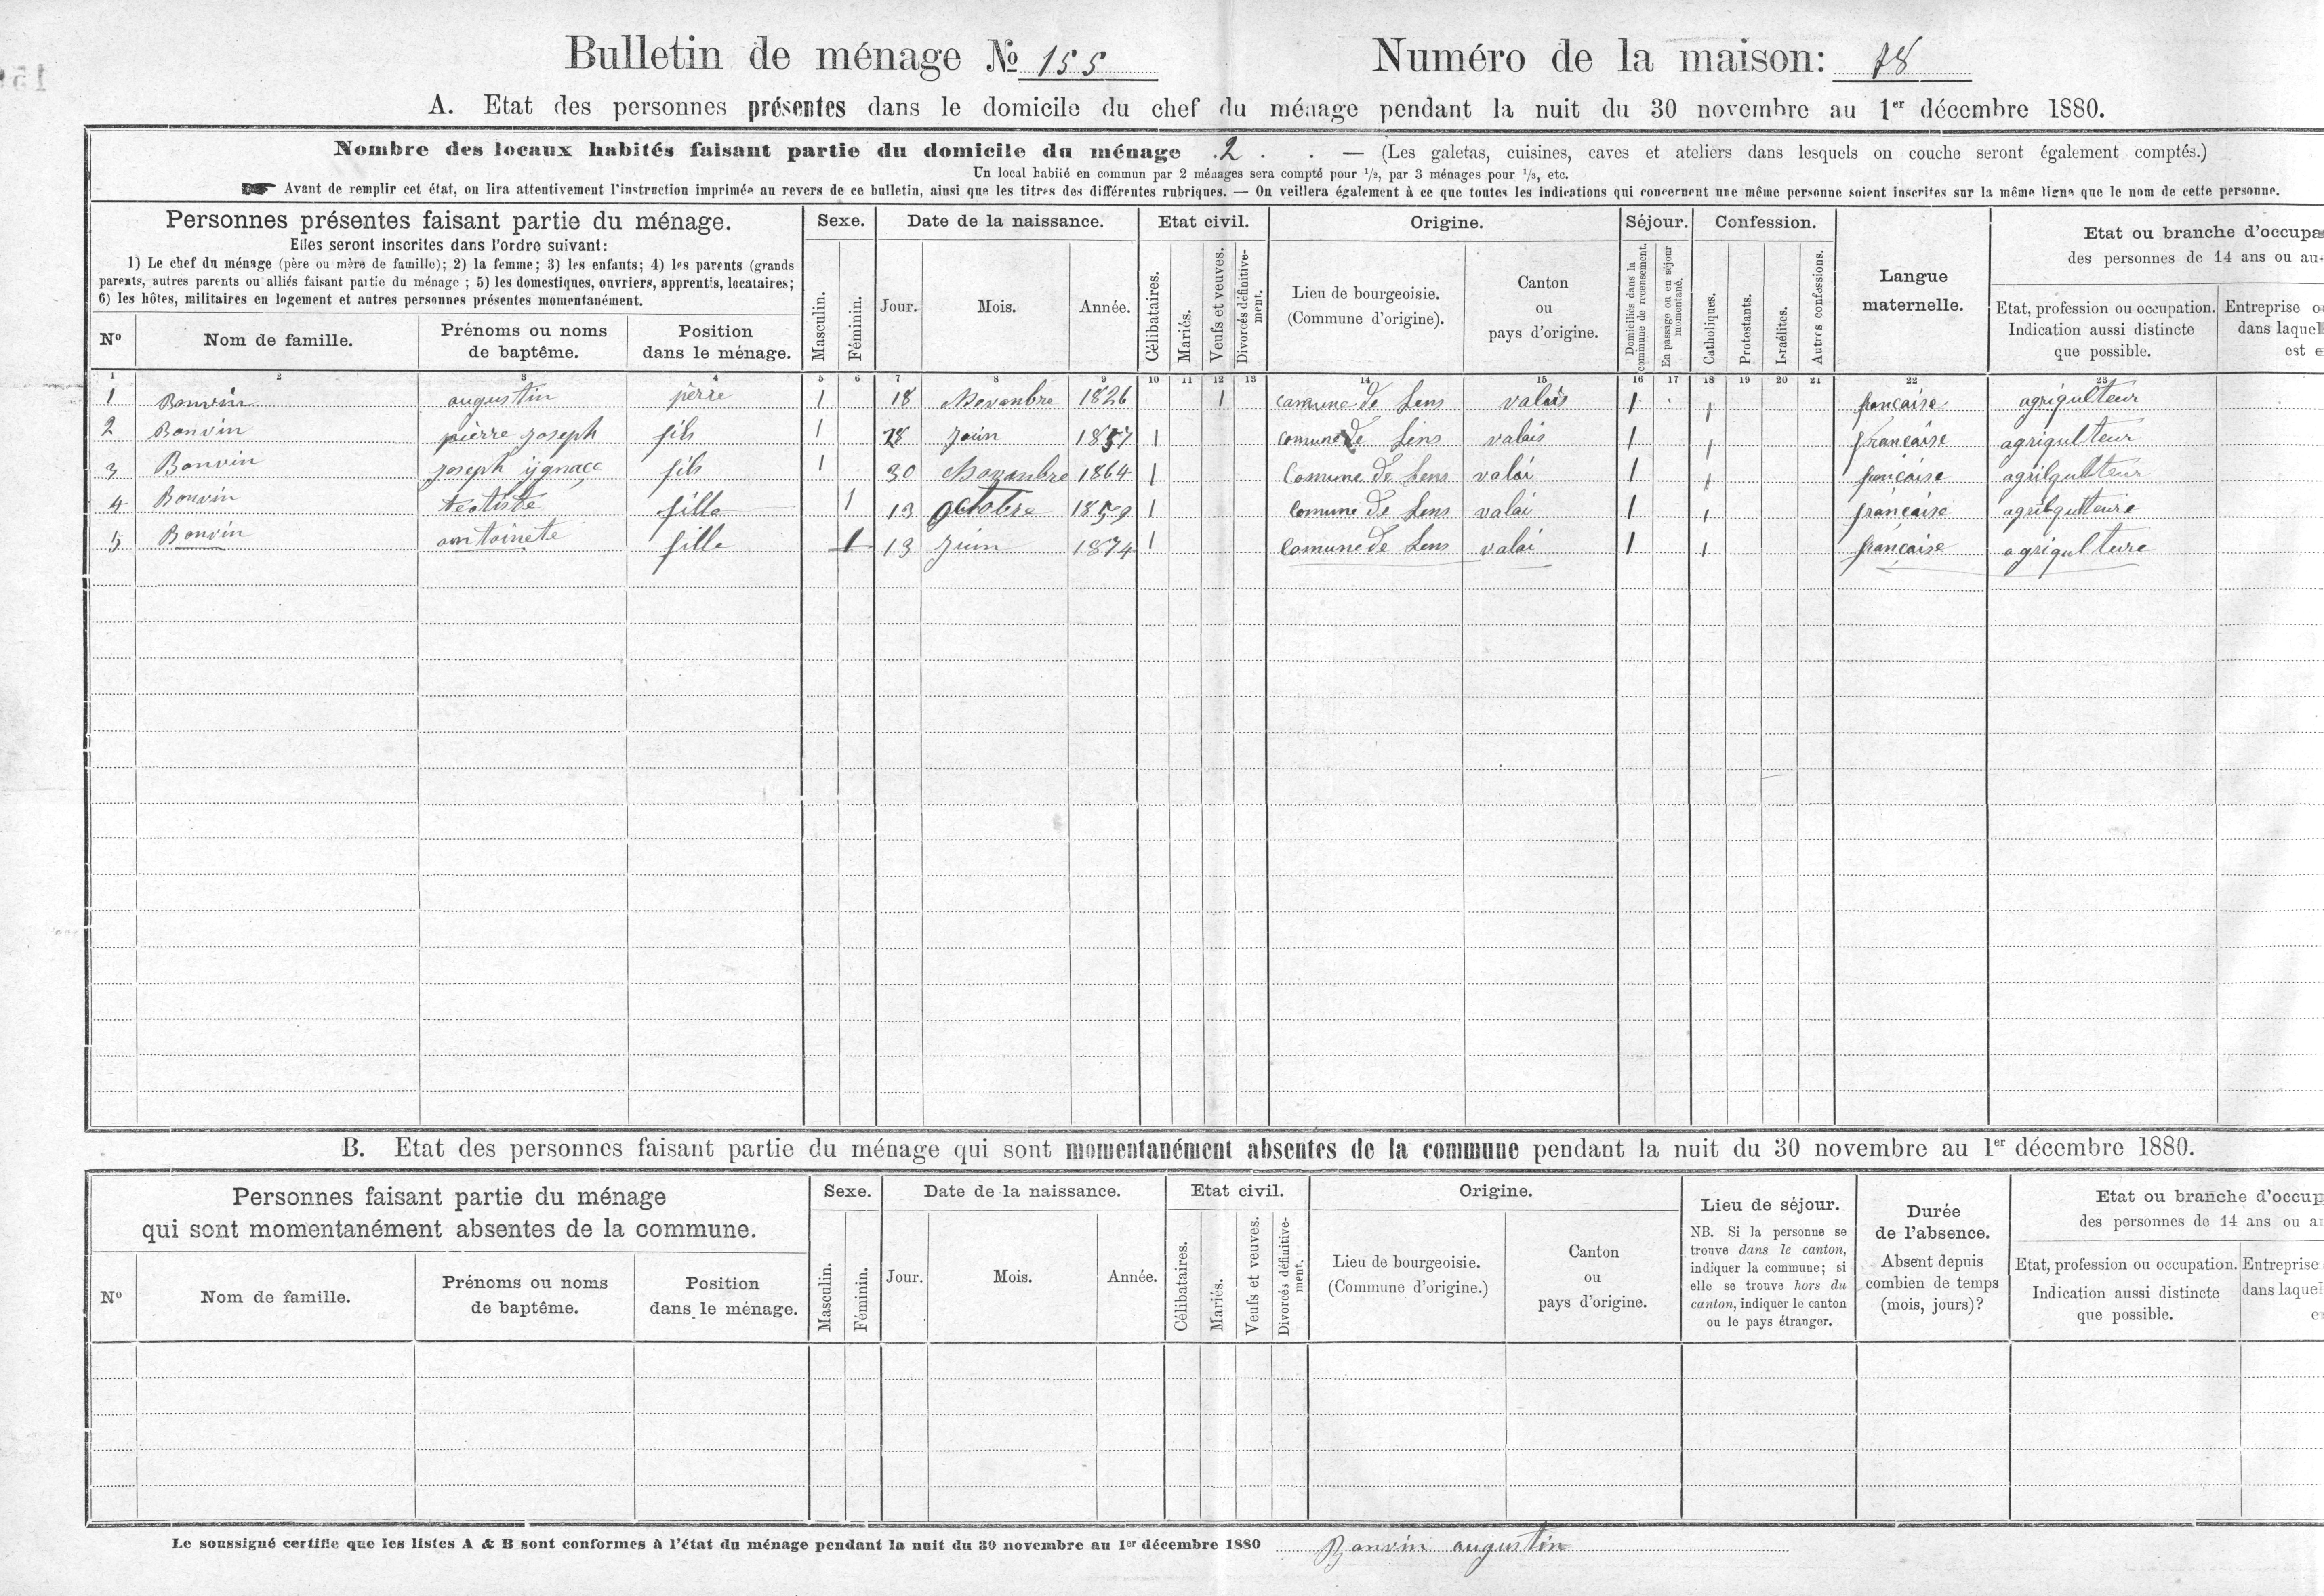 Bulletin de ménage No 155 Numéro de la maison: 78
A. Etat des personnes présentes dans le domicile du chef du ménage pendant la nuit du 30 novembre au 1er décembre 1880.
Nombre des locaux habités faisant partie du domicile du ménage 2 . . — (Les galetas, cuisines, caves et ateliers dans lesquels on couche seront également comptés.)
Un local habité en commun par 2 ménages sera compté pour 1/2, par 3 ménages pour 1/3, etc.
Avant de remplir cet état, on lira attentivement l'instruction imprimée au revers de ce bulletin, ainsi que les titres des différentes rubriques. — On veillera également à ce que toutes les indications qui concernent une même personne soient inscrites sur la même ligne que le nom de cette personne.
Personnes présentes faisant partie du ménage.
Elles seront inscrites dans l'ordre suivant:
1) Le chef du ménage (père ou mère de famille); 2) la femme; 3) les enfants; 4) les parents (grands
parents, autres parents ou alliés faisant partie du ménage ; 5) les domestiques, ouvriers, apprentis, locataires;
6) les hôtes, militaires en logement et autres personnes présentes momentanément.
No
Nom de famille.
Prénoms ou noms
de baptême.
Position
dans le ménage.
Sexe.
Masculin.
Féminin.
Date de la naissance.
Jour.
Mois.
Année.
Etat civil.
Célibataires.
Mariés.
Veufs et veuves.
Divorcés définitive-
ment.
Origine.
Lieu de bourgeoisie.
(Commune d'origine).
Canton
ou
pays d'origine.
Séjour.
Domiciliés dans la
commune de recensement.
En passage ou en séjour
momentané.
Confession.
Catholiques.
Protestants.
Israélites.
Autres confessions.
Langue
maternelle.
Etat ou branche d'occupa
des personnes de 14 ans ou au
Etat, profession ou occupation.
Indication aussi distincte
que possible.
Entreprise o
dans laquel
est e
1 2 3 4 5 6 7 8 9 10 11 12 13 14 15 16 17 18 19 20 21 22 23
1 Bonvin augustin pèrre 1 18 Novenbre 1826 1 comune de Lens valais 1 1 françaisé agriqulteur
2 Bonvin pièrre joseph fils 1 28 Joun 1857 1 comune de Lens valais 1 1 française agriqulteur
3 Bonvin joseph ijgnace fils 1 30 Novenbre 1864 1 Comune de Lens valai 1 1 française agrilqulteur
4 Bonvin teotiste fille 1 13 octobre 1859 1 Comune de Lens valai 1 1 française agriqulteure
5 Bonvin antoinete fille 1 13 Juin 1874 1 Comune de Lens valai 1 1 française agriqulteure
B. Etat des personnes faisant partie du ménage qui sont momentanément absentes de la commune pendant la nuit du 30 novembre au 1er décembre 1880.
Personnes faisant partie du ménage
qui sont momentanément absentes de la commune.
No
Nom de famille.
Prénoms ou noms
de baptême.
Position
dans le ménage.
Sexe.
Masculin.
Féminin.
Date de la naissance.
Jour.
Mois.
Année.
Etat civil.
Célibataires.
Mariés.
Veufs et veuves.
Divorcés définitive-
ment.
Origine.
Lieu de bourgeoisie.
(Commune d'origine.)
Canton
ou
pays d'origine.
Lieu de séjour.
NB. Si la personne se
trouve dans le canton,
indiquer la commune; si
elle se trouve hors du
canton, indiquer le canton
ou le pays étranger.
Durée
de l'absence.
Absent depuis
combien de temps
(mois, jours)?
Etat ou branche d'occup
des personnes de 14 ans ou a
Etat, profession ou occupation.
Indication aussi distincte
que possible.
Entreprise
dans laquel
e
Le soussigné certifie que les listes A & B sont conformes à l'état du ménage pendant la nuit du 30 novembre au 1er décembre 1880 Bonvin augustin